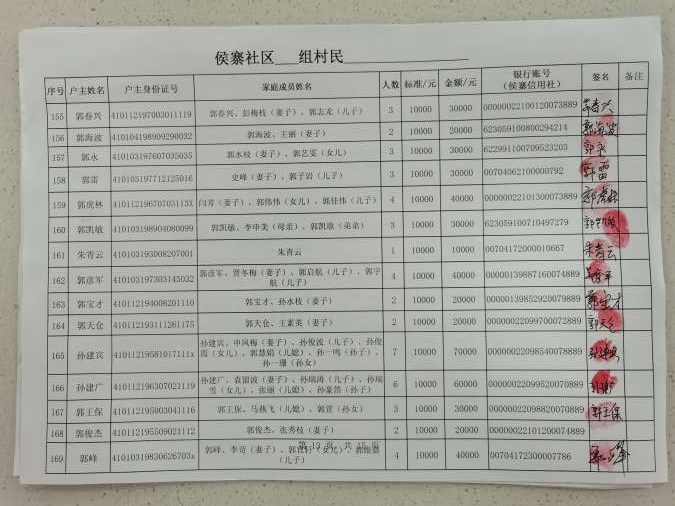 侯寨社区___组村民
序号 户主姓名 户主身份证号 家庭成员姓名 人数 标准/元 金额/元 银行账号（侯寨信用社） 签名 备注
155 郭春兴 410112197003011119 郭春兴、彭梅枝（妻子）、郭志龙（儿子） 3 10000 30000 00000022100120073889
156 郭海波 410104198909290032 郭海波、王丽（妻子） 2 10000 20000 623059100800294214
157 郭永 410103197607035035 郭水枝（妻子）、郭艺雯（女儿） 3 10000 30000 622991100709523203 郭永
158 郭雷 410103197712125016 史峰（妻子）、郭子岩（儿子） 3 10000 30000 00704062100000792 郭雷
159 郭虎林 41011219670703113X 闫芳（妻子）、郭伟伟（女儿）、郭佳伟（儿子） 4 10000 40000 00000022101300073889 郭虎林
160 郭凯敏 410103198904080099 郭凯敏、李申美（母亲）、郭凯敏（弟弟） 3 10000 30000 623059100710497279
161 朱青云 410103193008207001 朱青云 1 10000 10000 00704172000010667 朱青云
162 郭彦军 410103197303145032 郭彦军、贾冬梅（妻子）、郭启航（儿子）、郭宇航（儿子） 4 10000 40000 00000013988716007 4889
163 郭宝才 410112194008201110 郭宝才、孙水枝（妻子） 2 10000 20000 00000013985292007 9889
164 郭天仓 410112193111261175 郭天仓、王素英（妻子） 2 10000 20000 00000022099700072889 郭天仓
165 孙建宾 41011219581017111x 孙建宾、申凤梅（妻子）、孙俊波（儿子）、孙俊霞（女儿）、郭慧娟（儿媳）、孙一鸣（孙子）、孙一珊（孙女） 7 10000 70000 00000022098540078889
166 孙建广 410112196307021119 孙建广、袁留波（妻子）、孙瑞涛（儿子）、孙瑞雪（女儿）、张丽（儿媳）、孙豪浩（孙子） 6 10000 60000 00000022099520070889
167 郭王保 410112195003041116 郭王保、马燕飞（儿媳）、郭萱（孙女） 3 10000 30000 00000022098820070889 郭王保
168 郭俊杰 410112195509021112 郭俊杰、张秀枝（妻子） 2 10000 20000 00000022101200074889
169 郭峰 41010319830626703x 郭峰、李苛（妻子）、（女儿）、（儿子） 4 10000 40000 00704172300007786
第 13 页，共 15 页